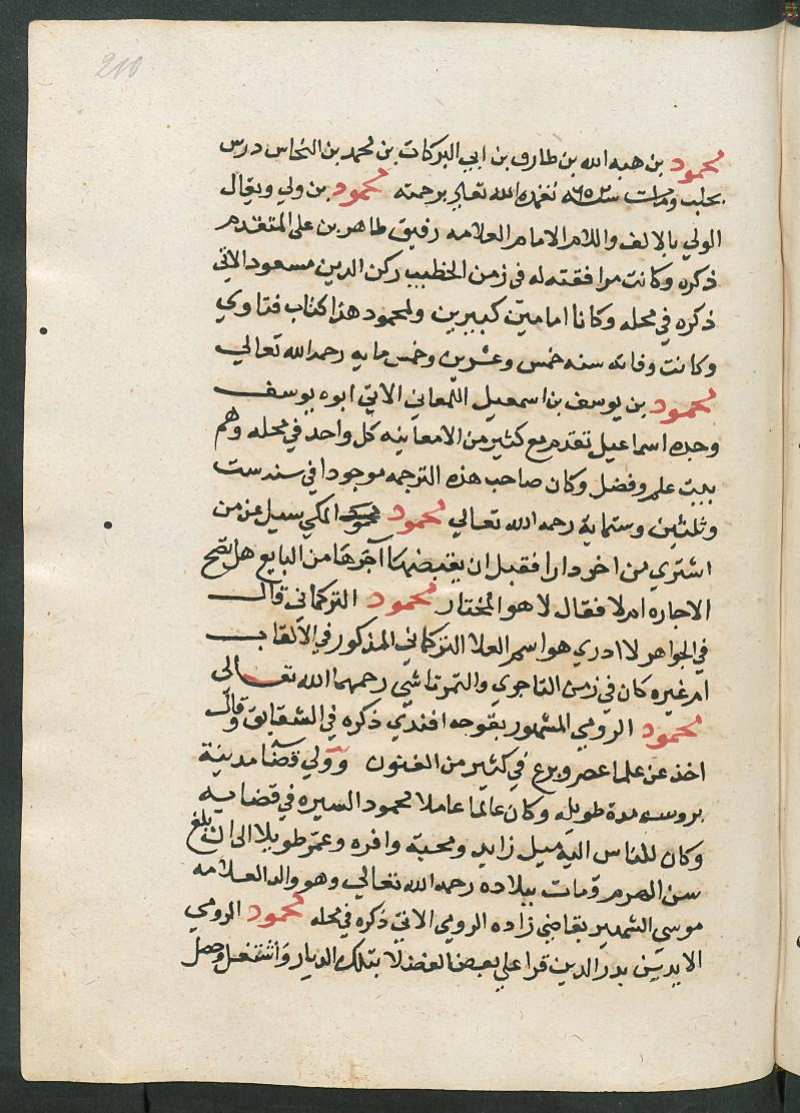 210
محمود بن هبه الله بن طارق بن ابي البركات بن محمد بن النحاس درس
بحلب ومات سنه ٦٥٢ تغمده الله تعالى برحمته محمود بن ولي ويقال
الولي بالالف واللام الامام العلامه رفيق طاهر بن على المتقدم
ذكره وكانت مرافقته له في زمن الخطيب ركن الدين مسعود الاتي
ذكره في محله وكانا امامين كبيرين ولمحمود هذا كتاب فتاوي
وكانت وفاته سنه خمس وعشرين وخمس مايه رحمه الله تعالي
محمود بن يوسف بن اسمعيل اللمعاني الاتي ابوه يوسف
وجده اسماعيل تقدم مع كثير من الامعانيه كل واحد في محله وهم
بيت علم وفضل وكان صاحب هذه الترجمه موجودا في سنه ست
وثلثين وستماية رحمه الله تعالي محمود المكي سيل عن من
اشتري من اخر دارا فقبل ان يقبضها آجرها من البايع هل تصح
الاجاره ام لا فقال لا هو المختار محمود التركماني قال
في الجواهر لا ادري هو اسم العلا التركماني المذكور في الالقاب
ام غيره كان في زمن التاجري والتمرتاشي رحمهما الله تعالى
محمود الرومي المشهور بقوجه افندي ذكره في الشقايق وقال
اخذ عن علما عصره وبرع في كثير من الفنون وولي قضا مدينة
بروسه مدة طويله وكان عالما عاملا محمود السيره في قضايه
وكان للناس اليه ميل زايد ومحبة وافره وعمر طويلا الى ان بلغ
سن الهرم ومات ببلاده رحمه الله تعالي وهو والد العلامه
موسي الشهير بقاضي زاده الرومي الاتي ذكره في محله محمود الرومي
الايديني بدر الدين قرا علي بعض الفضلا بتلك الديار واشتغل وحصل